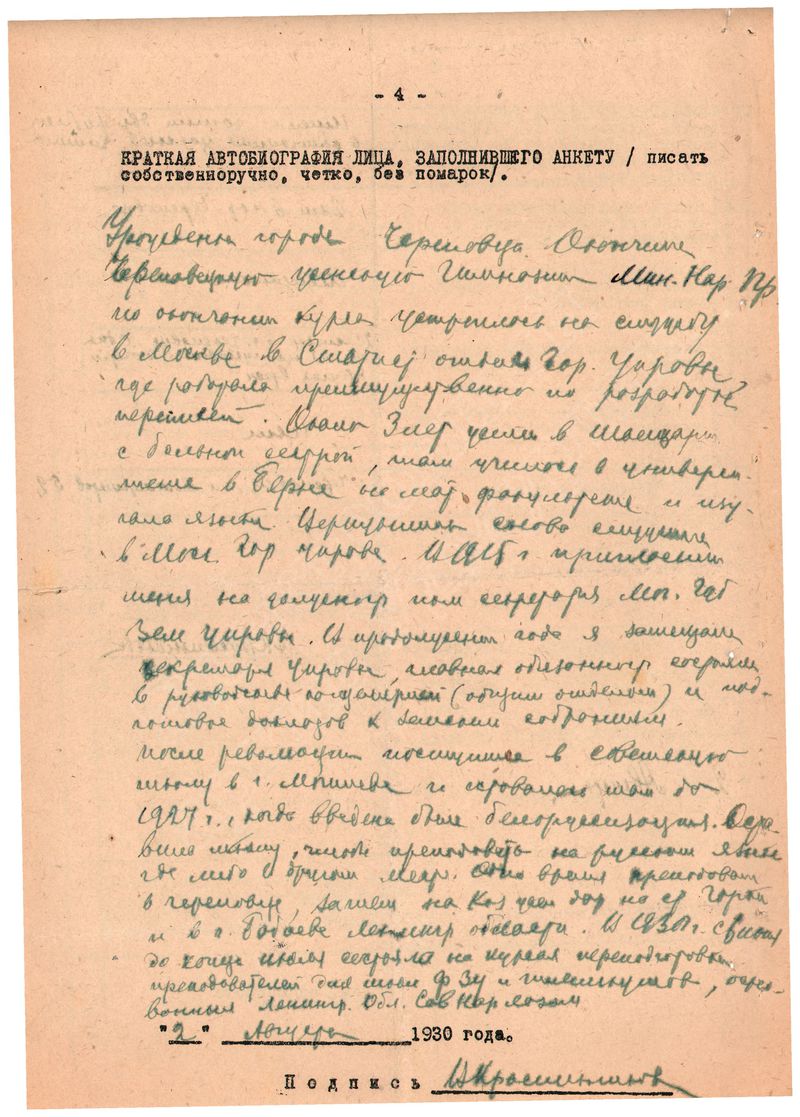 - 4 -
КРАТКАЯ АВТОБИОГРАФИЯ ЛИЦА, ЗАПОЛНИВШЕГО АНКЕТУ / писать
собственноручно, четко, без помарок/.
города Череповца Окончила
Череповецкую женскую гимназию Мин. Нар. Пр
по окончании курса устроилась на службу
в Москве в отдел Гор. Управы
где работала преимущественно по разработке
переписей. Около 3 лет жила в
с больной сестрой, там училась в универси-
тете в Берне на мат. факультете и изу-
чала языки. Вернувшись снова
в Моск. Гор управе. В 1915 г. пригласили
меня на должность пом секретаря Мог. Губ
Зем управы. В продолжении года я замещала
секретаря управы, главная обязанность состояла
в руководстве канцелярией (общим отделом) и под-
готовке докладов к земским собраниям.
После революции поступила в советскую
школу в г. Могилеве и оставалась там до
1927 г., когда введена была белоруссизация. Оста-
вила школу, чтобы преподавать на русском языке
где либо в другом месте. время преподавала
в Череповце, затем на дор на ст
и в г. Бабаеве Ленингр области. В 1930 г. с
до конца июля состояла на курсах переподготовки
преподавателей для школ ФЗУ и техникумов, осно-
ванных Ленингр. Обл. Сов Нар
"2" Августа 1930 года.
Подпись